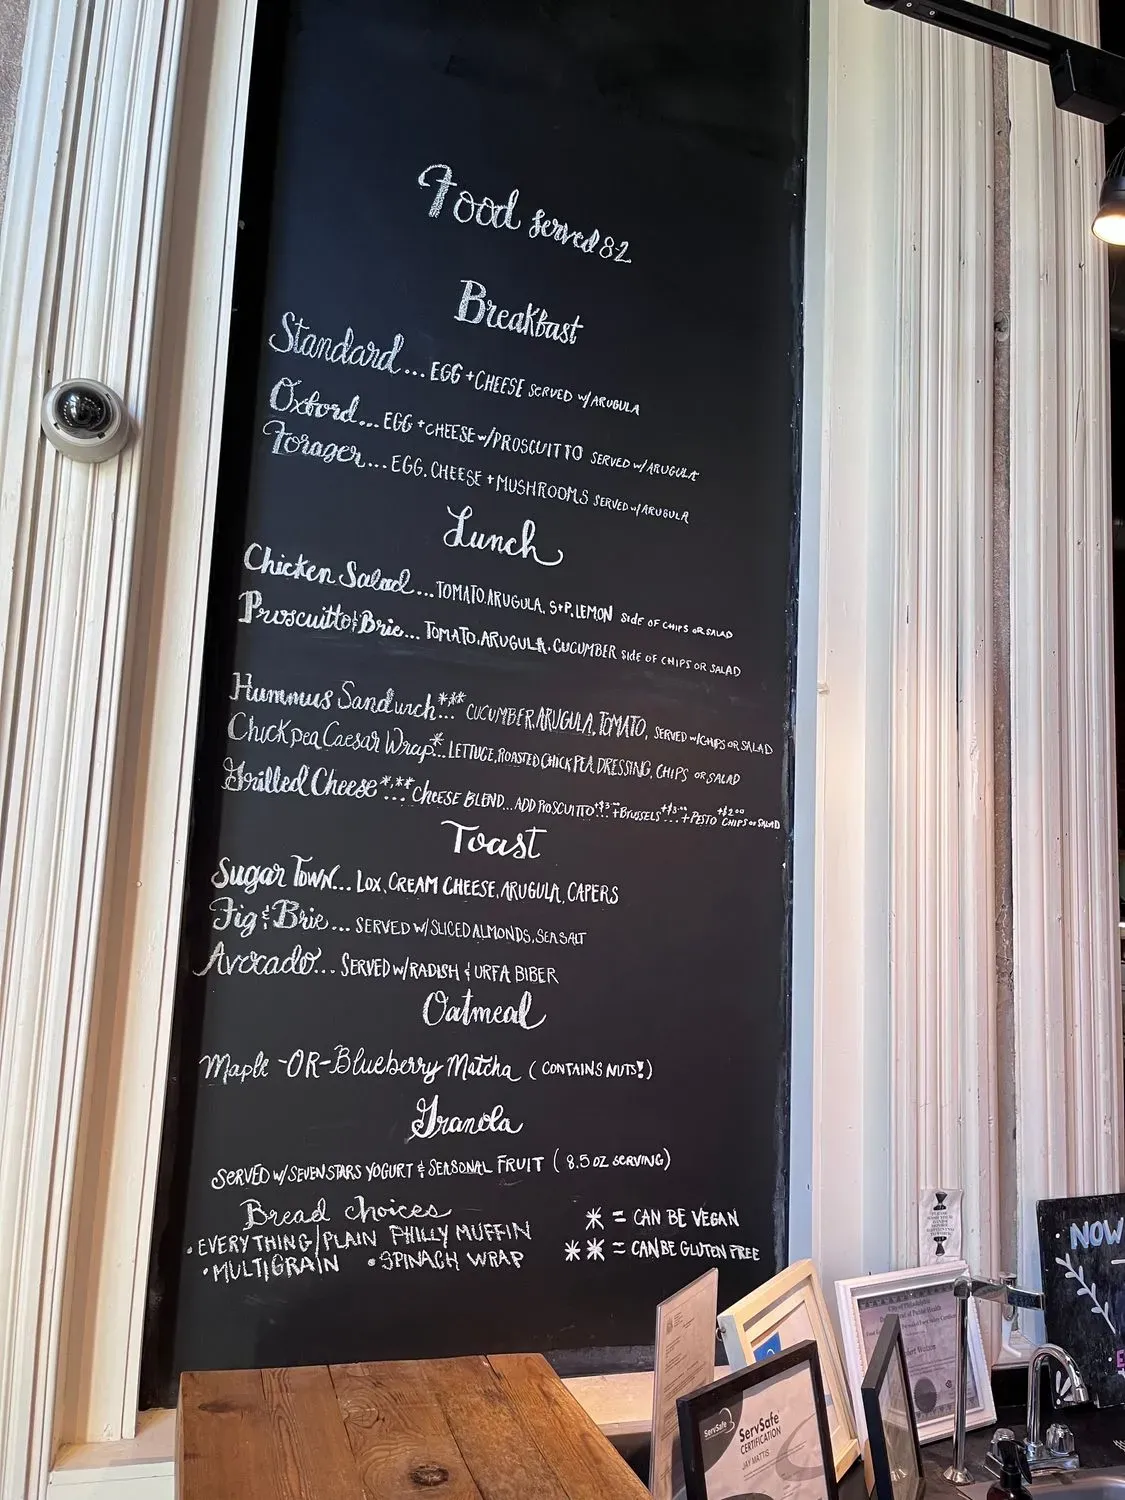 Food served 8-2
Breakfast
Standard... EGG + CHEESE SERVED W/ ARUGULA
Oxford... EGG + CHEESE W/ PROSCUITTO SERVED W/ ARUGULA
Forager... EGG, CHEESE + MUSHROOMS SERVED W/ ARUGULA
Lunch
Chicken Salad... TOMATO, ARUGULA, S+P, LEMON SIDE OF CHIPS OR SALAD
Proscuitto & Brie... TOMATO, ARUGULA, CUCUMBER SIDE OF CHIPS OR SALAD
Hummus Sandwich*,**... CUCUMBER, ARUGULA, TOMATO, SERVED W/ CHIPS OR SALAD
Chickpea Caesar Wrap*... LETTUCE, ROASTED CHICKPEA, DRESSING, CHIPS OR SALAD
Grilled Cheese*,**... CHEESE BLEND... ADD PROSCUITTO +$3.00... + BRUSSELS +$3.00... + PESTO +$2.00 CHIPS OR SALAD
Toast
Sugar Town... LOX, CREAM CHEESE, ARUGULA, CAPERS
Fig & Brie... SERVED W/ SLICED ALMONDS, SEA SALT
Avocado... SERVED W/ RADISH & URFA BIBER
Oatmeal
Maple -OR- Blueberry Matcha (CONTAINS NUTS!)
Granola
SERVED W/ SEVEN STARS YOGURT & SEASONAL FRUIT (8.5 OZ SERVING)
Bread choices
• EVERYTHING/PLAIN PHILLY MUFFIN
• MULTIGRAIN • SPINACH WRAP
* = CAN BE VEGAN
** = CAN BE GLUTEN FREE
NOW
City of Philadelphia
ServSafe
ServSafe
CERTIFICATION
JAY MATTIS